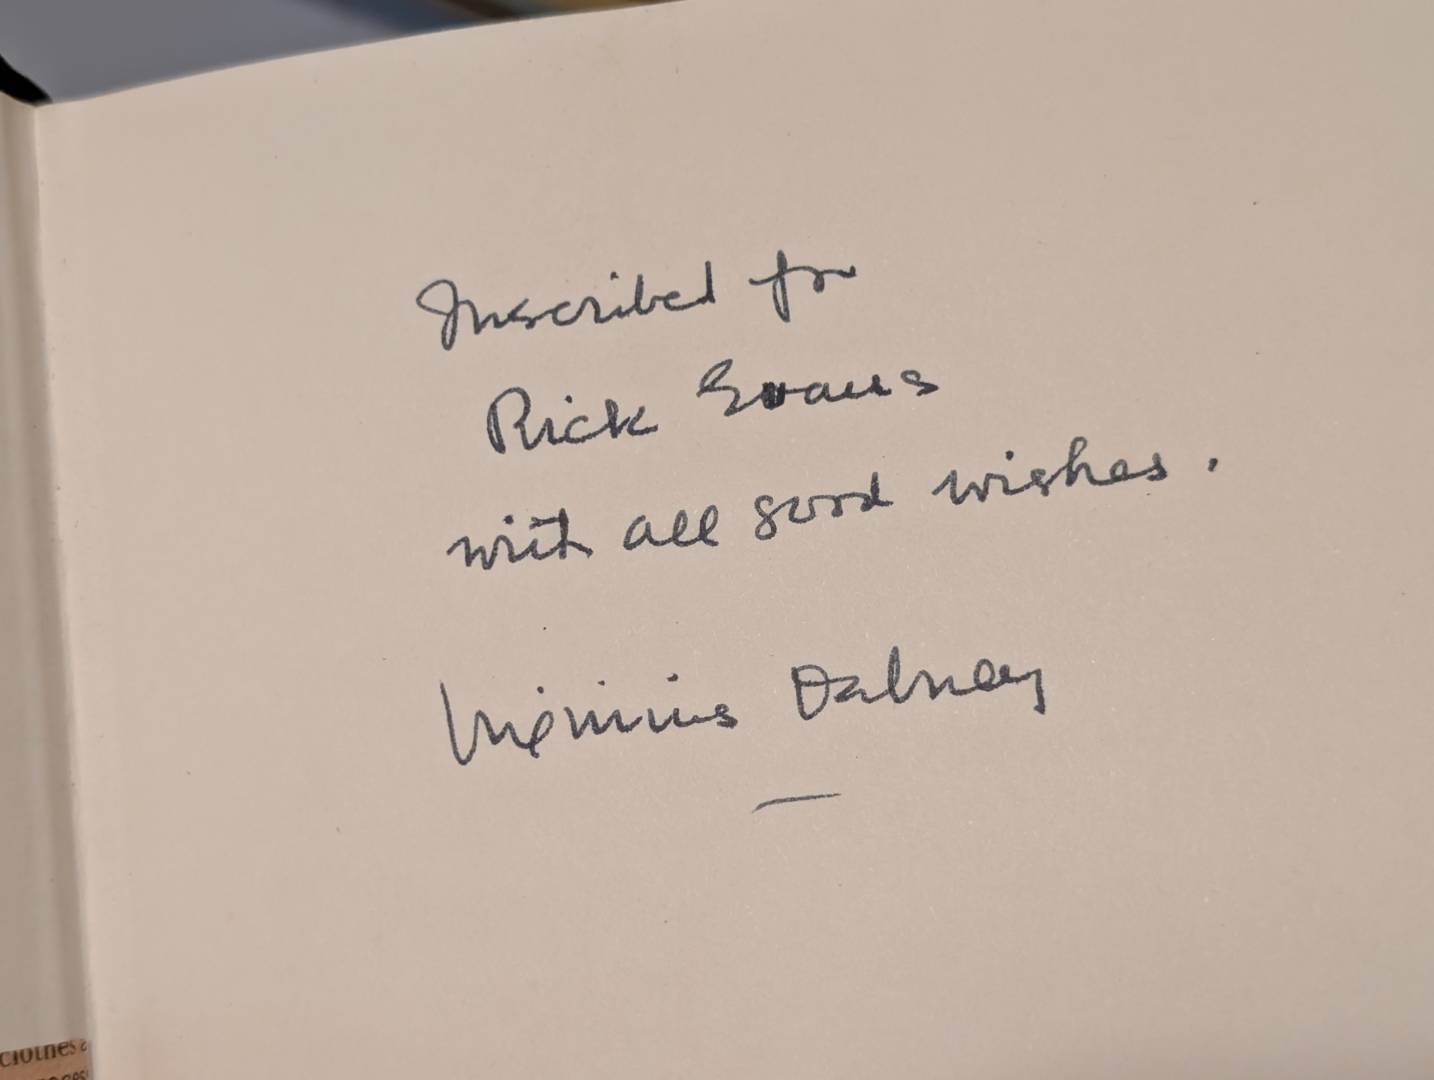 Inscribed for
Rick Evans
with all good wishes.
Virginius Dabney
clothes